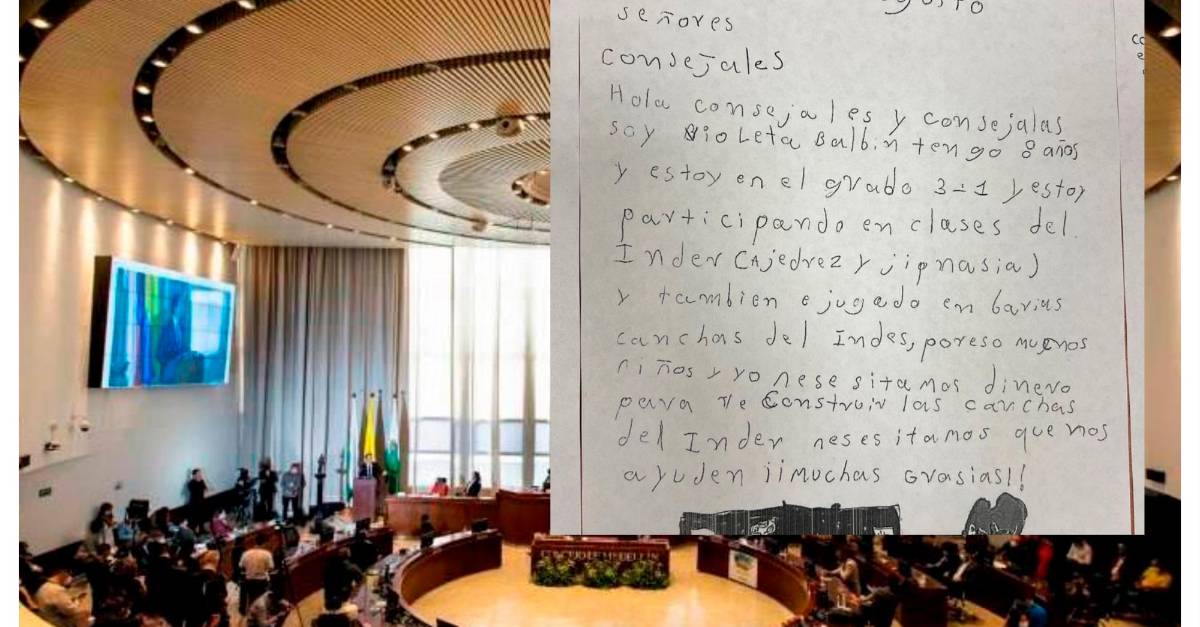 señores
Consejales
Hola consejales y consejalas
soy Violeta Balbin tengo 8 años
y estoy en el grado 3-1 y estoy
participando en clases del
Inder (Ajedrez y jipnasia)
y tambien e jugado en barias
canchas del Indes, poreso muchos
niños y yo nesesitamos dinero
para reconstruir las canchas
del Inder nesesitamos que nos
ayuden ¡¡Muchas Grasias!!
CONCEJO DE MEDELLÍN